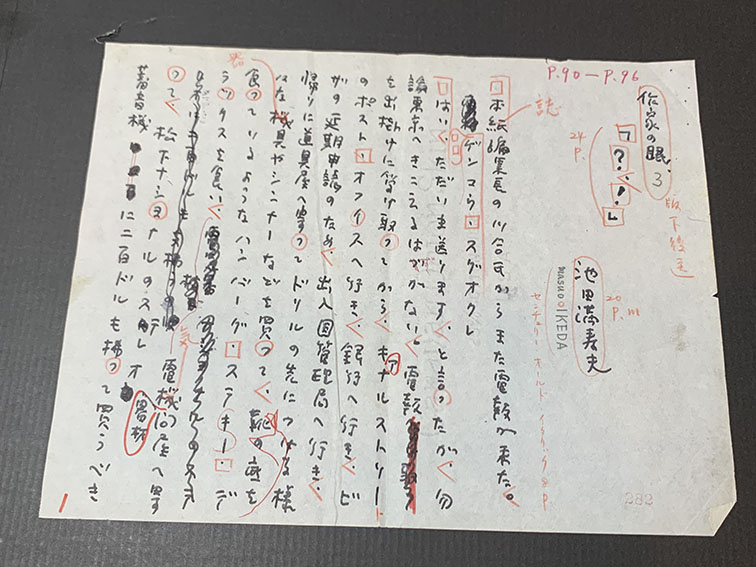 P.90―P.96
作家の眼 3
「?・!」
24 P.
版下後送
池田満寿夫
20 P. M
masuo IKEDA
センチュリー オールド イタリック 8P
本紙編集長の川合氏からまた電報が来た。
誌
ゲンコウ・スグオクレ
はい、ただいま送ります、と言ったが、勿
論東京へきこえるはずがない。電報
を出掛けに受け取ってから、キャナルストリート
のポスト・オフィスへ行き、銀行へ行き、ビ
ザの延期申請のため、出入国管理局へ行き、
帰りに道具屋へ寄ってドリルの先につける様
々な機具やシンナーなどを買って、靴の底を
器
食っているようなハンバーグ・ステーキ・デ
ラックスを食い、
って、松下ナショナルのステレオ
電機問屋へ寄
気
蓄音機 に二百ドルも払って買うべき
282